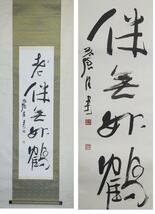 老伴無如鶴
伴無如鶴